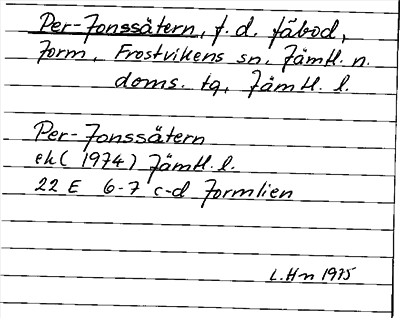 Per-Jonssätern, f. d. fäbod,
Jorm, Frostvikens sn. Jämtl. n.
doms. tg, Jämtl. l.
Per-Jonssätern
ek (1974) Jämtl. l.
22 E 6-7 c-d Jormlien
L.Hn 1975